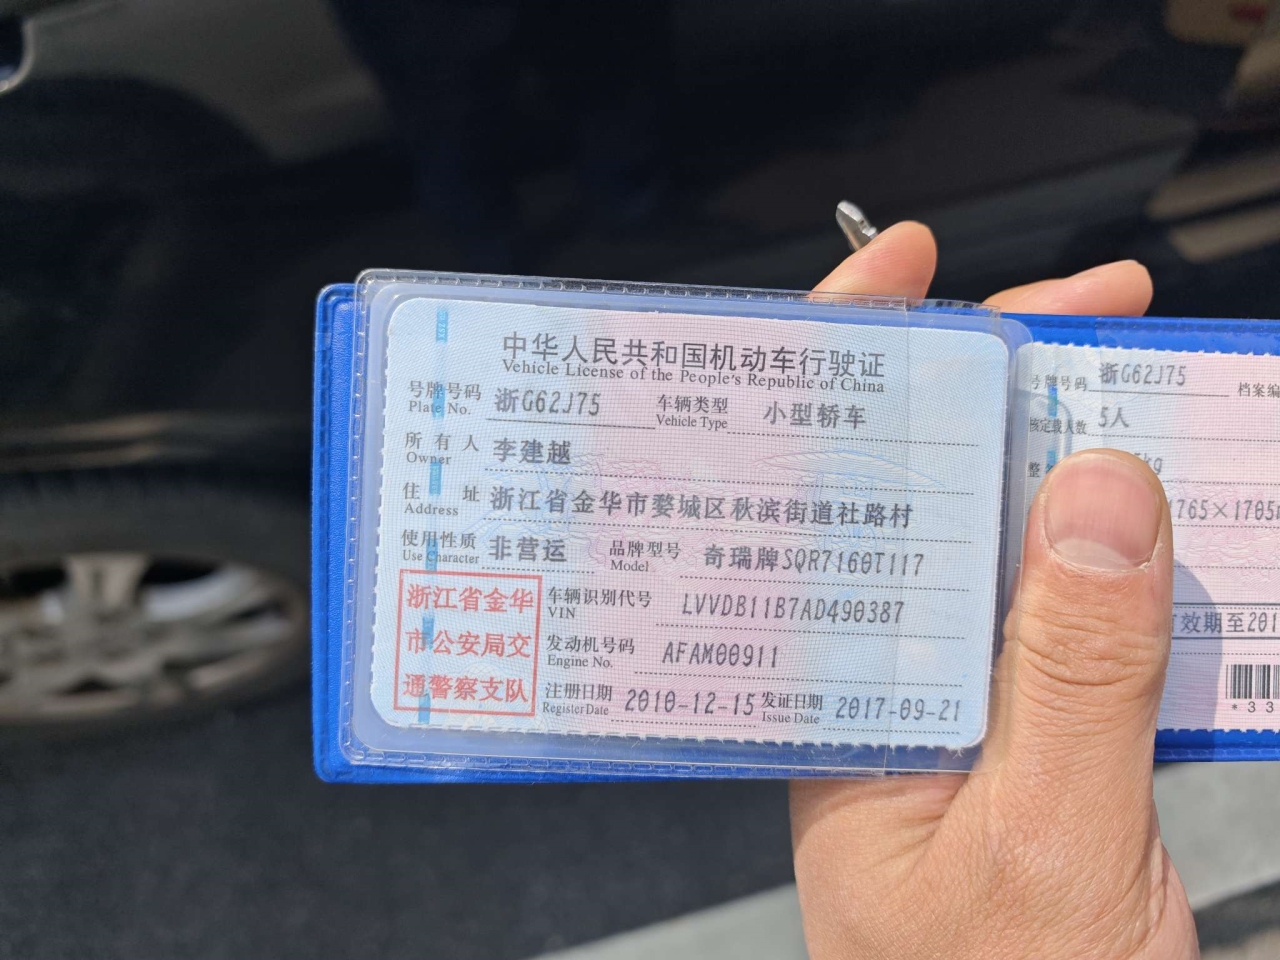 中华人民共和国机动车行驶证
Vehicle License of the People's Republic of China
号牌号码 浙G62J75 车辆类型 小型轿车
Plate No. Vehicle Type
所有人 李建越
Owner
住址 浙江省金华市婺城区秋滨街道社路村
Address
使用性质 非营运 品牌型号 奇瑞牌SQR7160T117
Use Character Model
浙江省金华
市公安局交
通警察支队
车辆识别代号 LVVDB11B7AD490387
VIN
发动机号码 AFAM00911
Engine No.
注册日期 2010-12-15 发证日期 2017-09-21
Register Date Issue Date
号牌号码 浙G62J75 档案编
核定载人数 5人
整 kg
1765×1705
有效期至201
*33